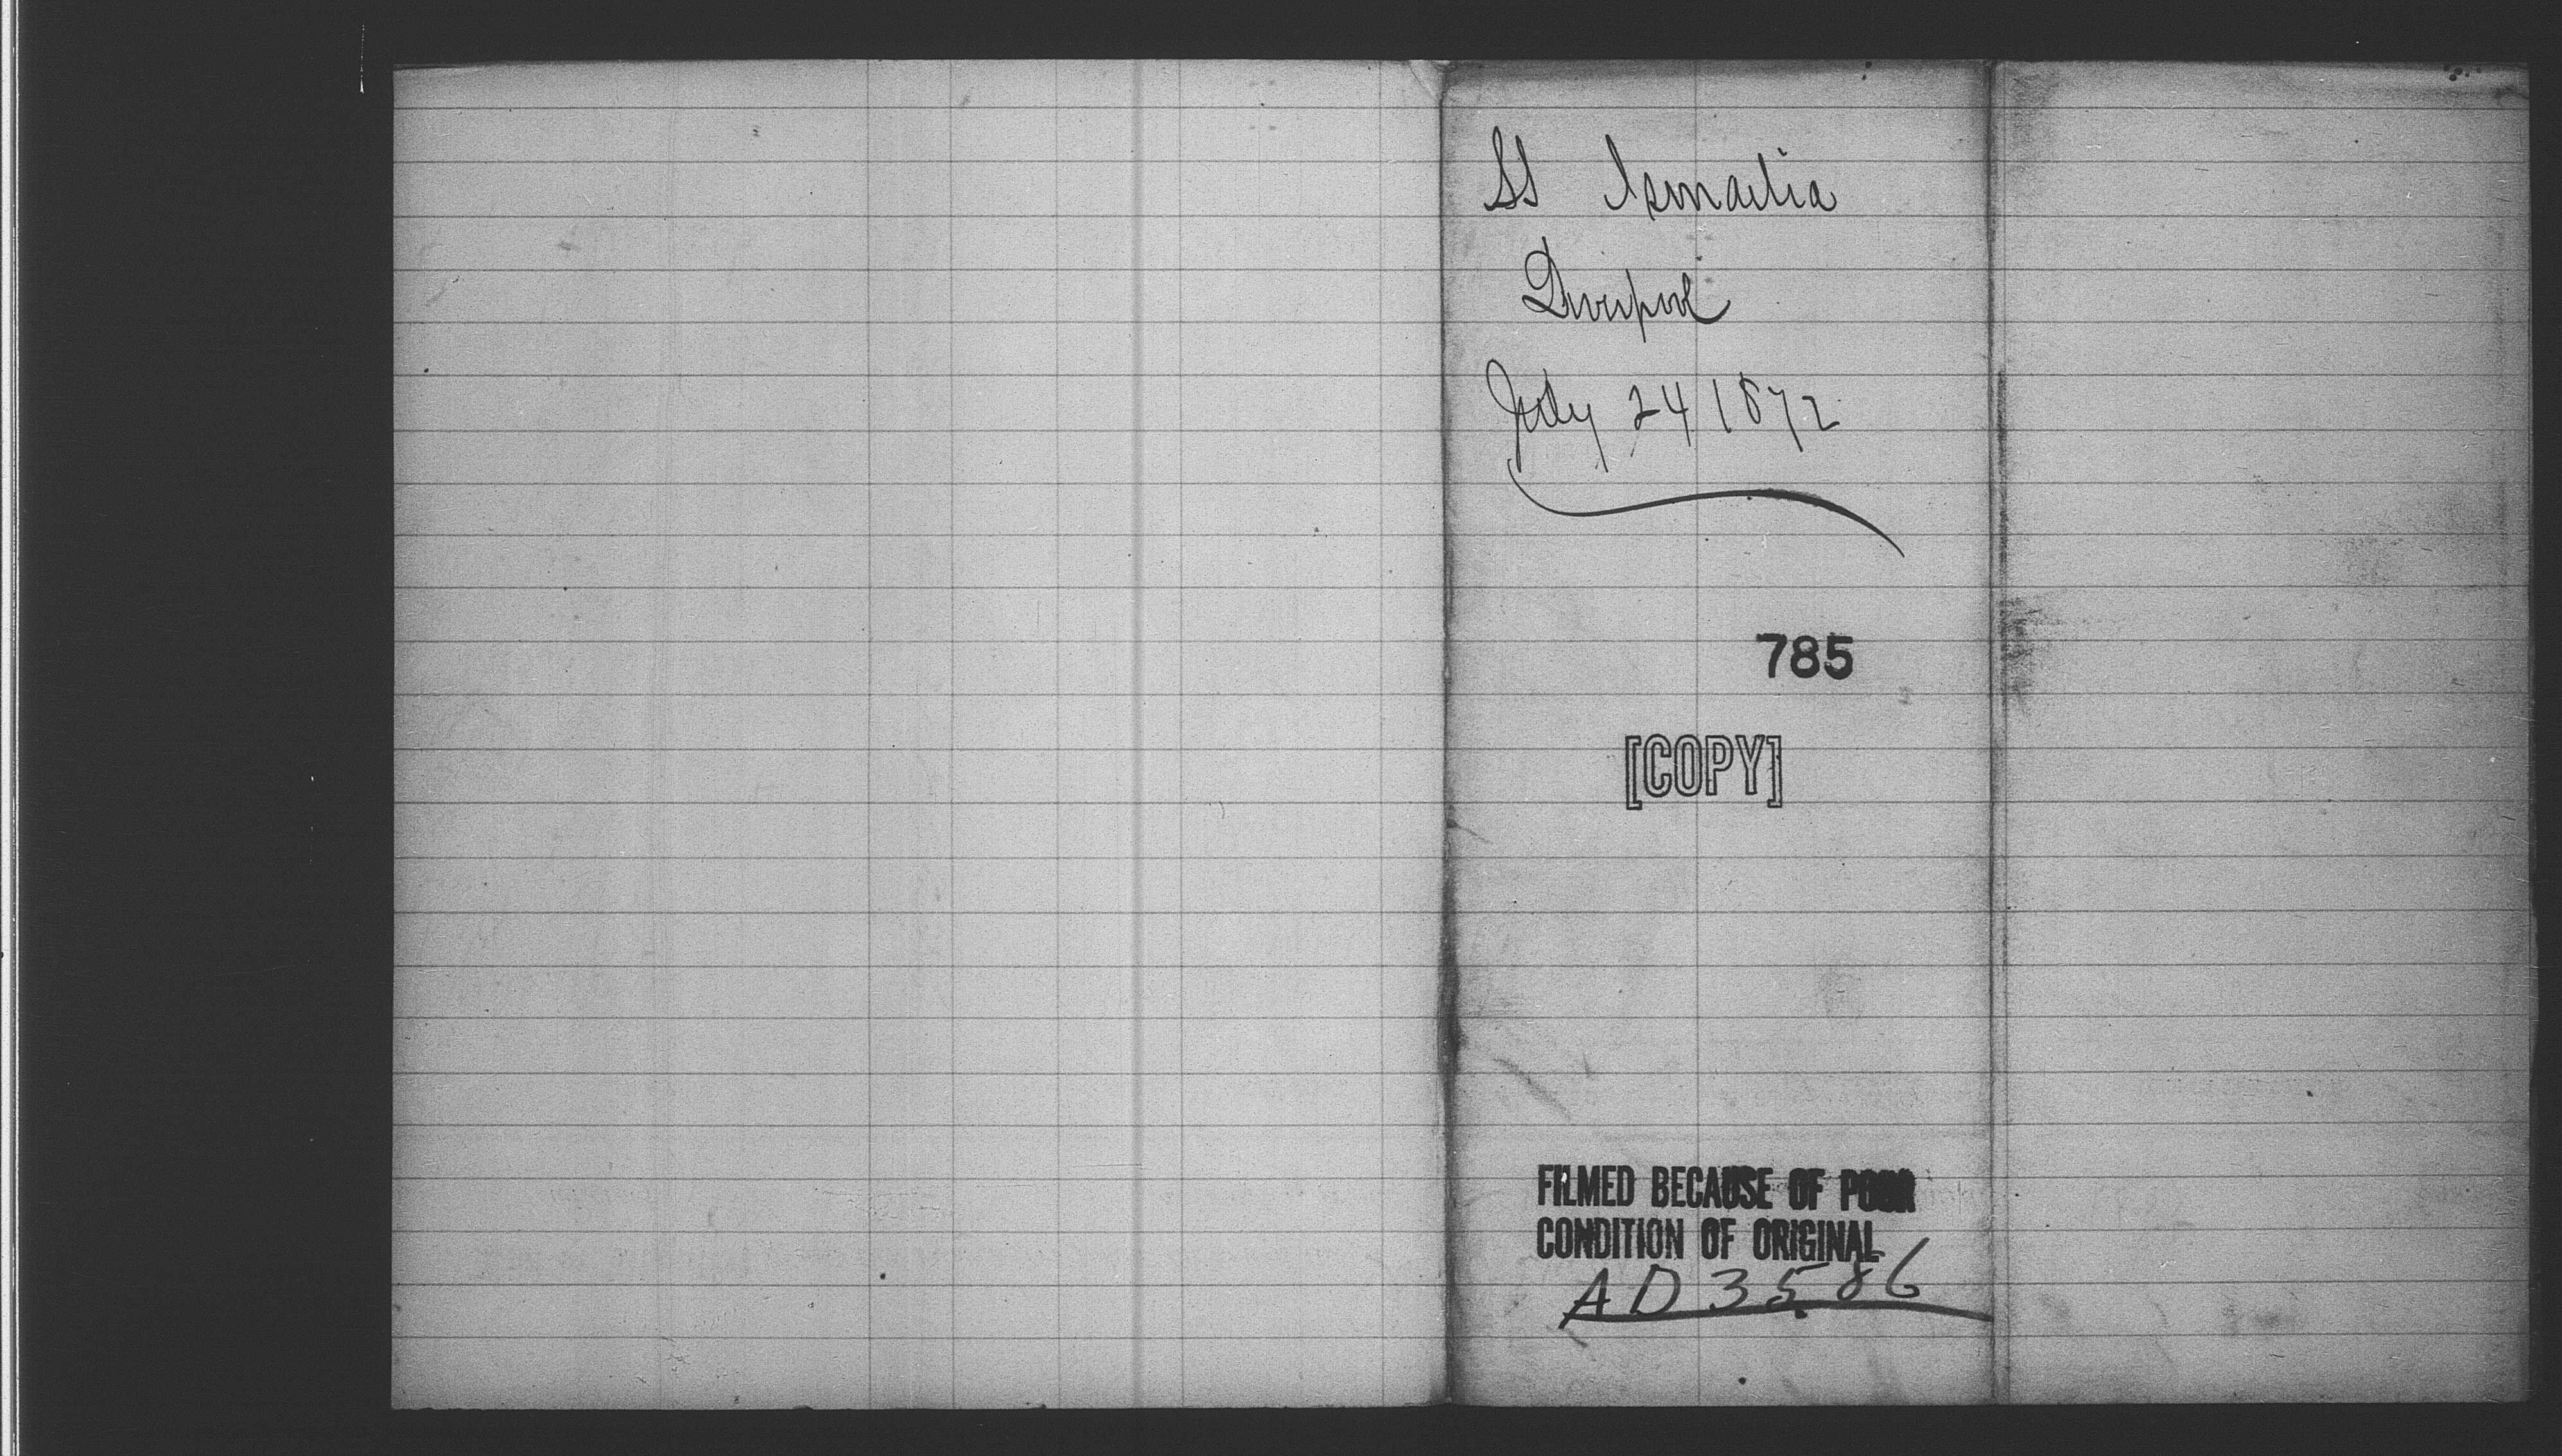 SS Ismailia
Liverpool
July 24 1872
785
[COPY]
FILMED BECAUSE OF POOR
CONDITION OF ORIGINAL
AD 3586